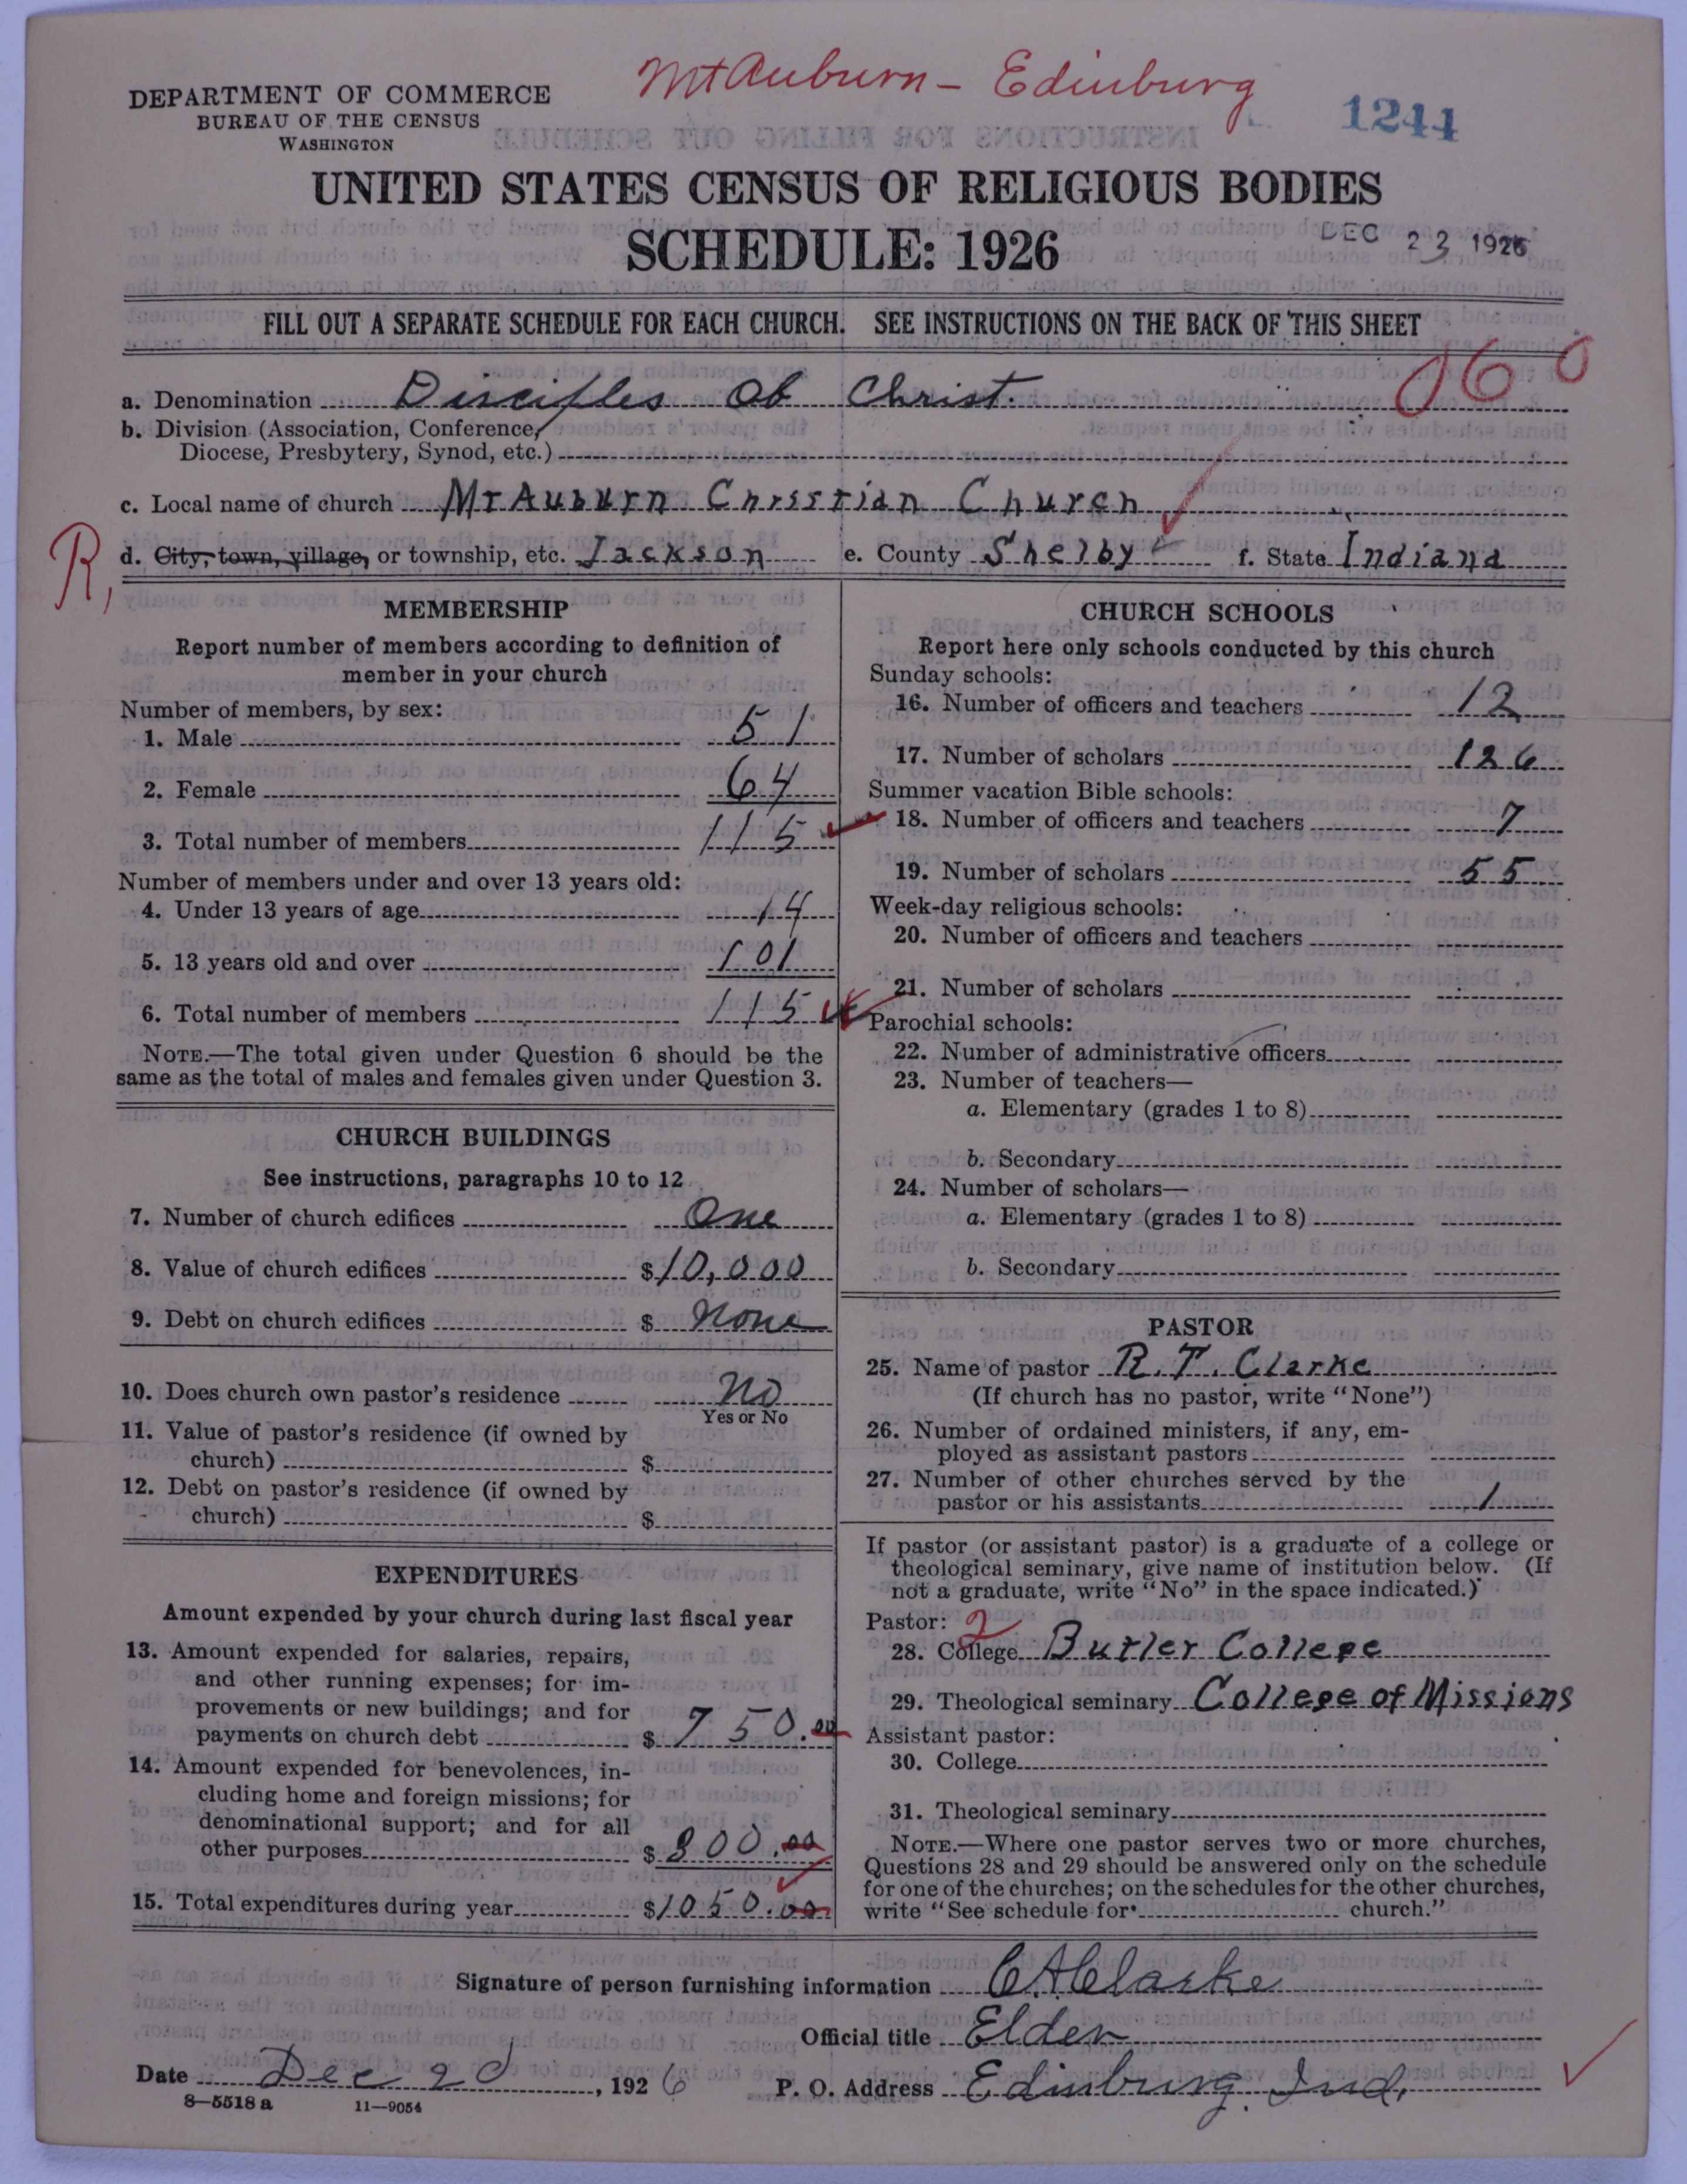 Mt Auburn - Edinburg
DEPARTMENT OF COMMERCE
BUREAU OF THE CENSUS
WASHINGTON
1244
UNITED STATES CENSUS OF RELIGIOUS BODIES
SCHEDULE: 1926
DEC 23 1926
FILL OUT A SEPARATE SCHEDULE FOR EACH CHURCH. SEE INSTRUCTIONS ON THE BACK OF THIS SHEET
060
a. Denomination Disciples Of Christ.
b. Division (Association, Conference,
Diocese, Presbytery, Synod, etc.)
c. Local name of church Mt Auburn Christian Church
R,
d. City, town, village, or township, etc. Jackson e. County Shelby f. State Indiana
MEMBERSHIP
Report number of members according to definition of
member in your church
Number of members, by sex:
1. Male 51
2. Female 64
3. Total number of members 115
Number of members under and over 13 years old:
4. Under 13 years of age 14
5. 13 years old and over 101
6. Total number of members 115
NOTE.—The total given under Question 6 should be the
same as the total of males and females given under Question 3.
CHURCH BUILDINGS
See instructions, paragraphs 10 to 12
7. Number of church edifices One
8. Value of church edifices $10,000
9. Debt on church edifices $ None
10. Does church own pastor's residence No
Yes or No
11. Value of pastor's residence (if owned by
church) $
12. Debt on pastor's residence (if owned by
church) $
EXPENDITURES
Amount expended by your church during last fiscal year
13. Amount expended for salaries, repairs,
and other running expenses; for im-
provements or new buildings; and for
payments on church debt $ 750.00
14. Amount expended for benevolences, in-
cluding home and foreign missions; for
denominational support; and for all
other purposes $ 300.00
15. Total expenditures during year $1050.00
CHURCH SCHOOLS
Report here only schools conducted by this church
Sunday schools:
16. Number of officers and teachers 12
17. Number of scholars 126
Summer vacation Bible schools:
18. Number of officers and teachers 7
19. Number of scholars 55
Week-day religious schools:
20. Number of officers and teachers
21. Number of scholars
Parochial schools:
22. Number of administrative officers
23. Number of teachers—
a. Elementary (grades 1 to 8)
b. Secondary
24. Number of scholars—
a. Elementary (grades 1 to 8)
b. Secondary
PASTOR
25. Name of pastor R. T. Clarke
(If church has no pastor, write "None")
26. Number of ordained ministers, if any, em-
ployed as assistant pastors
27. Number of other churches served by the
pastor or his assistants 1
If pastor (or assistant pastor) is a graduate of a college or
theological seminary, give name of institution below. (If
not a graduate, write "No" in the space indicated.)
Pastor: 2
28. College Butler College
29. Theological seminary College of Missions
Assistant pastor:
30. College
31. Theological seminary
NOTE.—Where one pastor serves two or more churches,
Questions 28 and 29 should be answered only on the schedule
for one of the churches; on the schedules for the other churches,
write "See schedule for church."
Signature of person furnishing information C.A. Clarke
Official title Elder
Date Dec 20, 1926 P. O. Address Edinburg, Ind.
8—5518 a 11—9054